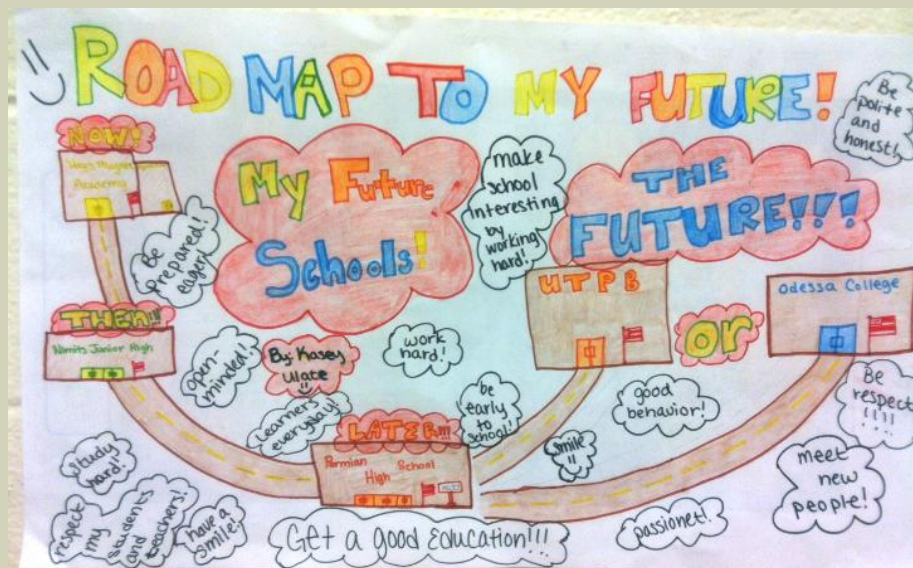 ROAD MAP TO MY FUTURE!
Be
polite
and
honest!
NOW!
Hays Magnet
Academy
My Future
Schools!
make
school
interesting
by
working
hard!
THE
FUTURE!!!
Be
Prepared!
eager!
UTPB
or
Odessa College
THEN!!!
Nimits Junior High
open-
minded!
By: Kasey
Ulate
work
hard!
Learners
everyday!
be
early
to
school!
good
behavior!
Be
respect
!!!!
LATER!!!
Permian School
High
smile
meet
new
people!
study
hard!
respect
my
students
and
teachers!
have a
smile!
Get a good Education!!!
passionet!